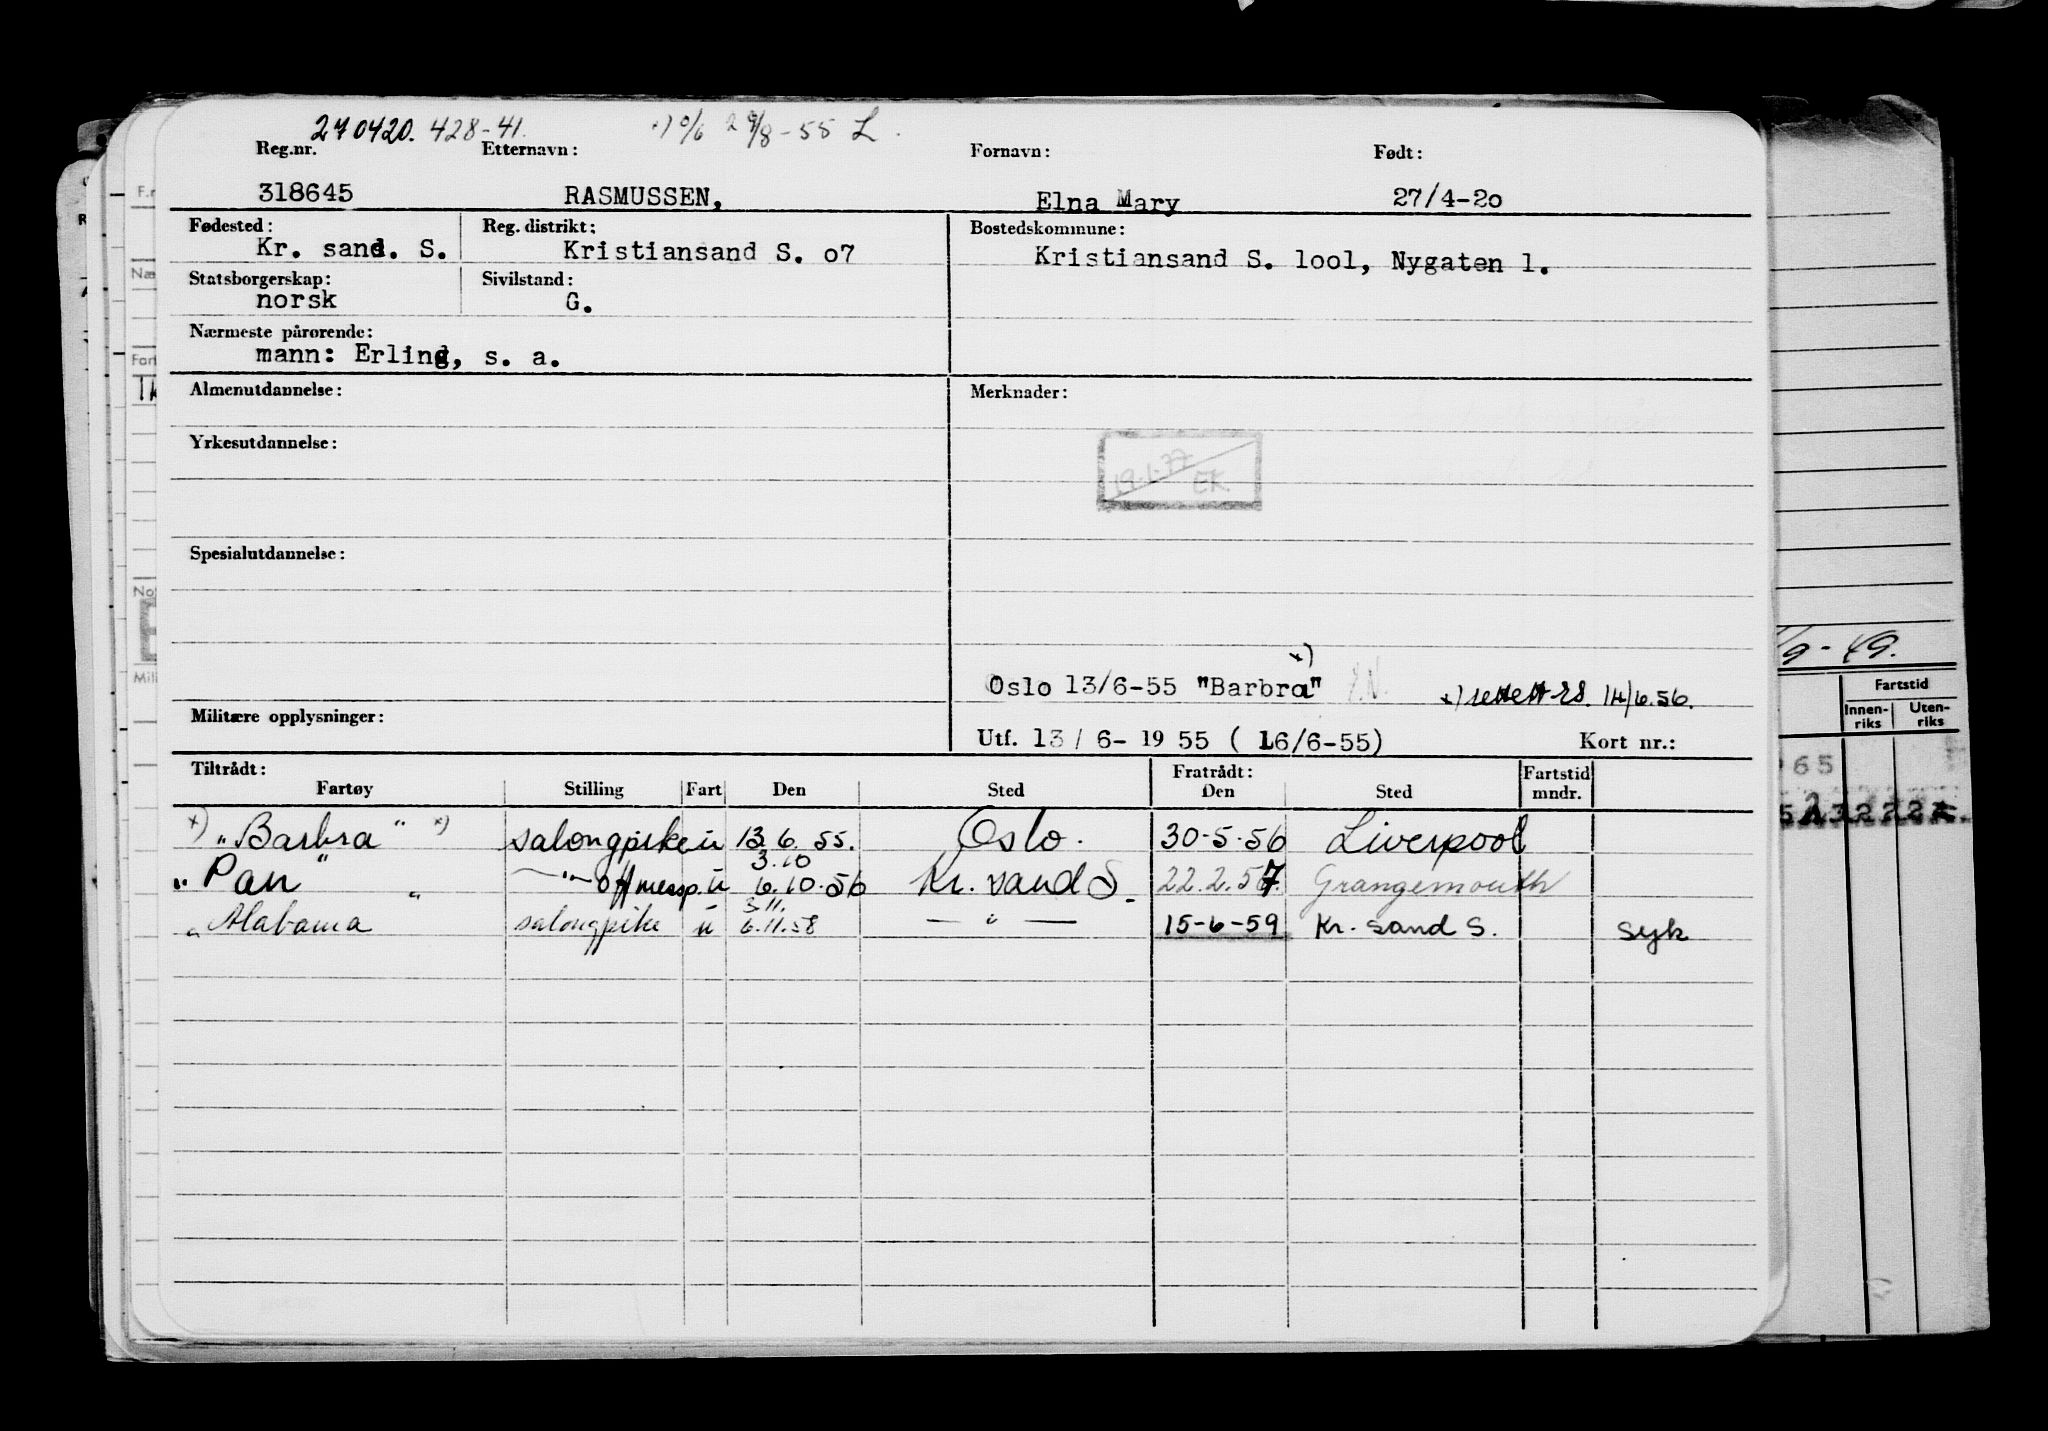 270420. 428-41. x) o/6 29/8-55 L.
Reg.nr. Etternavn: Fornavn: Født:
318645 RASMUSSEN, Elna Mary 27/4-2o
Fødested: Reg. distrikt: Bostedskommune:
Kr. sand. S. Kristiansand S. o7 Kristiansand S. lool, Nygaten 1.
Statsborgerskap: Sivilstand:
norsk G.
Nærmeste pårørende:
mann: Erling, s. a.
Almenutdannelse: Merknader:
Yrkesutdannelse:
19.1.77
EK
Spesialutdannelse:
x)
Oslo 13/6-55 "Barbra" x) rettet RS. 14/6.56.
Militære opplysninger:
Utf. 13/6-1955 (16/6-55) Kort nr.:
Tiltrådt: Fratrådt: Fartstid
Fartøy Stilling Fart Den Sted Den Sted mndr.
x) "Barbra" x) salongpike u 13.6.55. Oslo. 30-5-56 Liverpool
3.10
"Pan" —"— offmessp. u 6.10.56 Kr. sand S. 22.2.57. Grangemouth
3.11.
"Alabama" salongpike u 6.11.58 —"— 15-6-59 Kr. sand S. syk
/9-49.
Fartstid
Innen- Uten-
riks riks
65